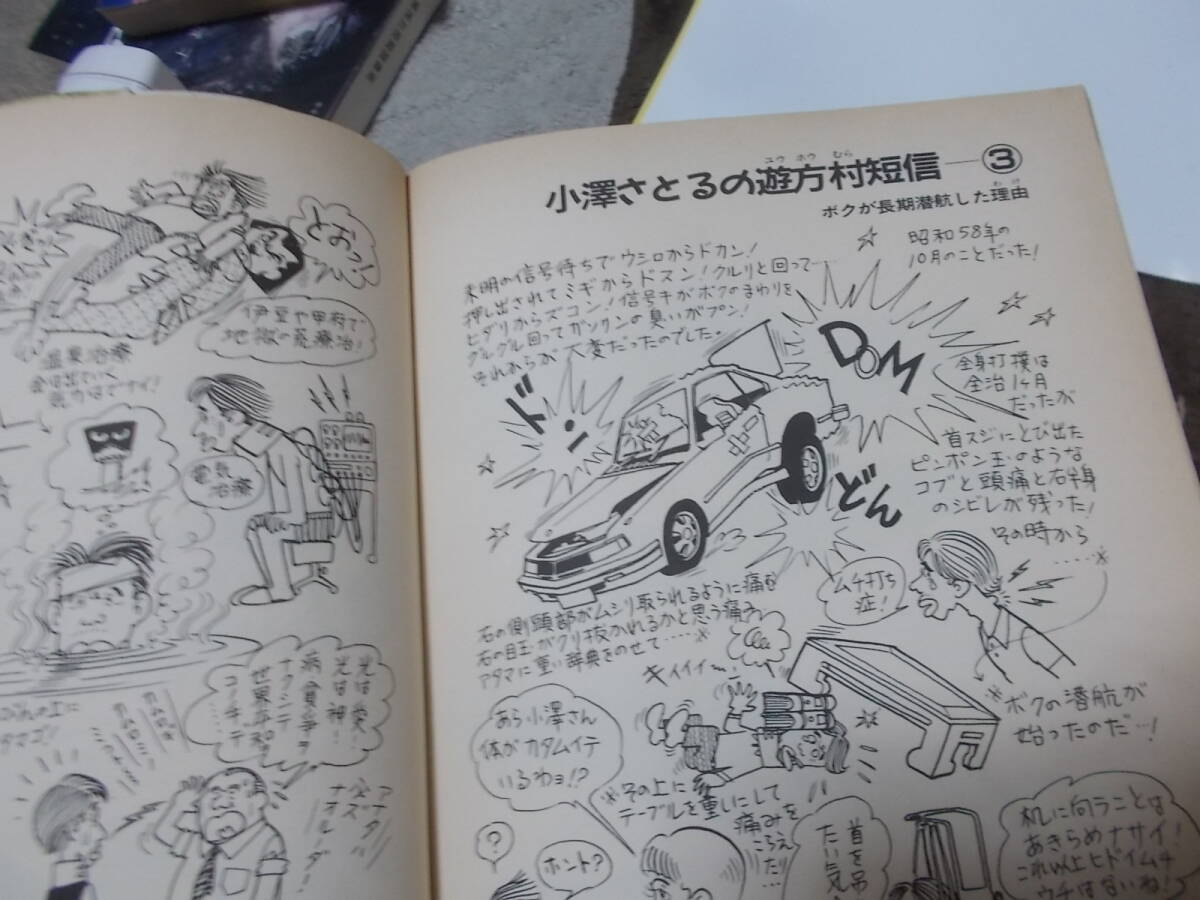 小澤さとるの遊方村短信―③
ユウ ホウ むら
ボクが長期潜航した理由
わけ
昭和58年の
10月のことだった!
未明の信号待ちでウシロからドカン!
押し出されてミギからドスン!クルリと回って……
ヒダリからズコン!信号キがボクのまわりを
グルグル回ってガソリンの臭いがプン!
それからが大変だったのでした。
ドン
DOM
どん
全身打撲は
全治1ヶ月
だったが
首スジにとび出た
ピンポン玉のような
コブと頭痛と右半身
のシビレが残った!
その時から
……※
ムチ打ち
症!
右の側頭部がムシリ取られるように痛む
右の目玉がクリ抜かれるかと思う痛み
アタマに重い辞典をのせて……※
キィィィ〜
※ボクの潜航が
始ったのだ…!
あら小澤さん
体がカタムイテ
いるわョ!?
※その上に
テーブルを重しにして
痛みを
こらえ
たり!
?
ホント?
首を吊
たい気
机に向うことは
あきらめナサイ!
これ以上ヒドイムチ
ウチはないね!
とおっ!
伊豆や甲府で
地獄の荒療治!
温泉治療
金は出ていく
電気
治療
光は災!
光は神!
病貧争ヲ
ナクシテ
世界平和
アナタハ
ナオルーダー!